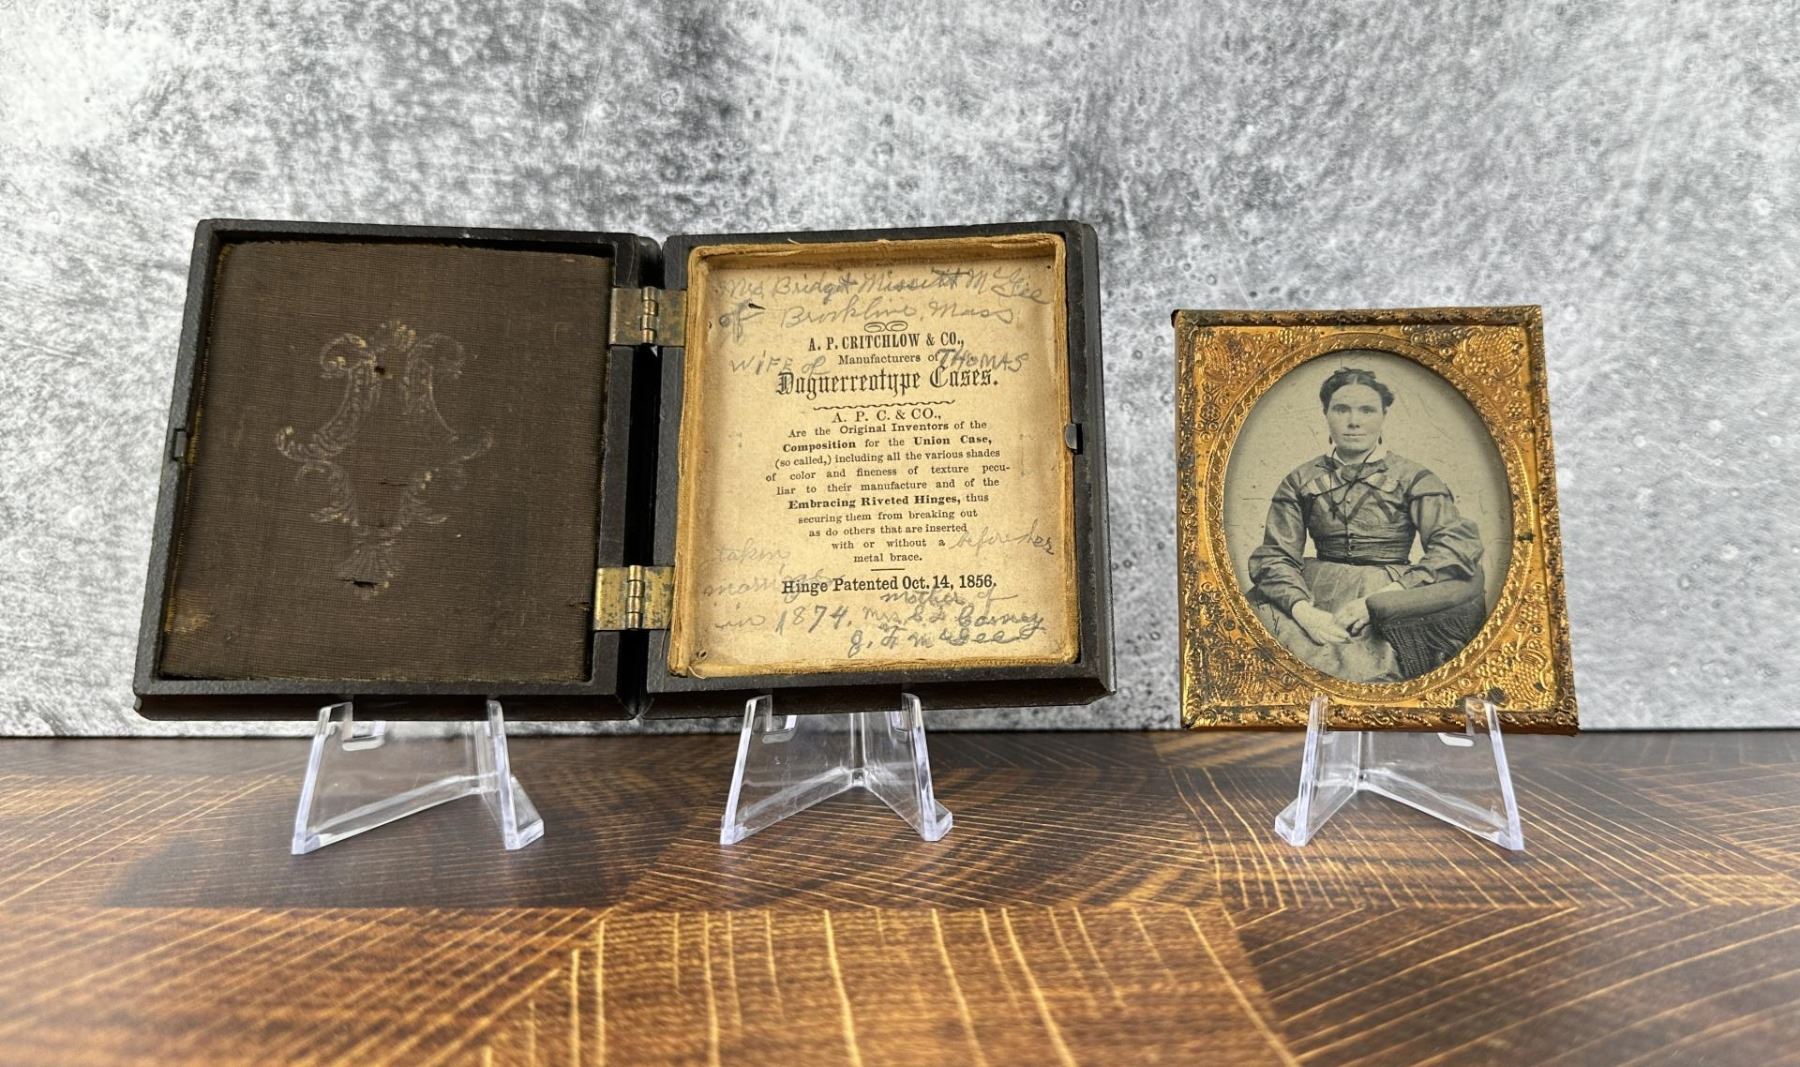 Mrs Bridget Missitt McGee
of Brookline, Mass
A. P. CRITCHLOW & CO.,
Manufacturers of
WIFE of THOMAS
Daguerreotype Cases.
A. P. C. & CO.,
Are the Original Inventors of the
Composition for the Union Case,
(so called,) including all the various shades
of color and fineness of texture pecu-
liar to their manufacture and of the
Embracing Riveted Hinges, thus
securing them from breaking out
as do others that are inserted
with or without a
metal brace.
taken before her
marriage
Hinge Patented Oct. 14, 1856.
in 1874. mother of
Mrs
J. F. McGee